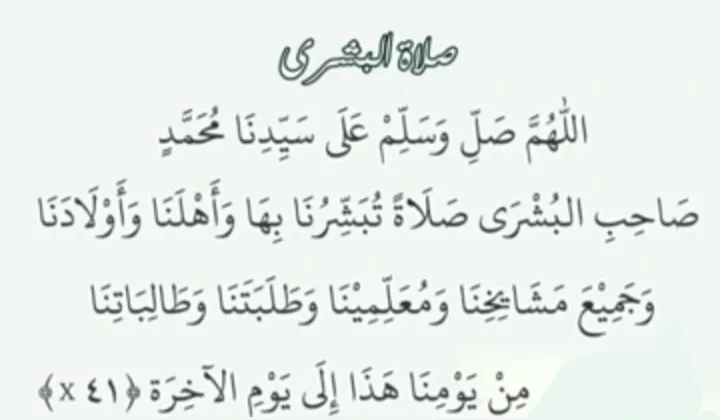 صلاة البشرى
اللّٰهُمَّ صَلِّ وَسَلِّمْ عَلَى سَيِّدِنَا مُحَمَّدٍ
صَاحِبِ البُشْرَى صَلَاةً تُبَشِّرُنَا بِهَا وَأَهْلَنَا وَأَوْلَادَنَا
وَجَمِيْعَ مَشَايِخِنَا وَمُعَلِّمِيْنَا وَطَلَبَتَنَا وَطَالِبَاتِنَا
مِنْ يَوْمِنَا هَذَا إِلَى يَوْمِ الآخِرَة ﴿٤١ x﴾